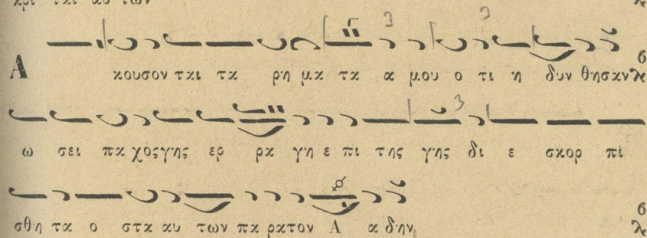 κρι ται αυ των
Α κουσον ται τα ρη μα τα α μου ο τι η δυν θησαν
ω σει πα χοςγης ερ ρα γη ε πι της γης δι ε σκορ πί
σθη τα ο στα αυ των πα ρατον Α α δην